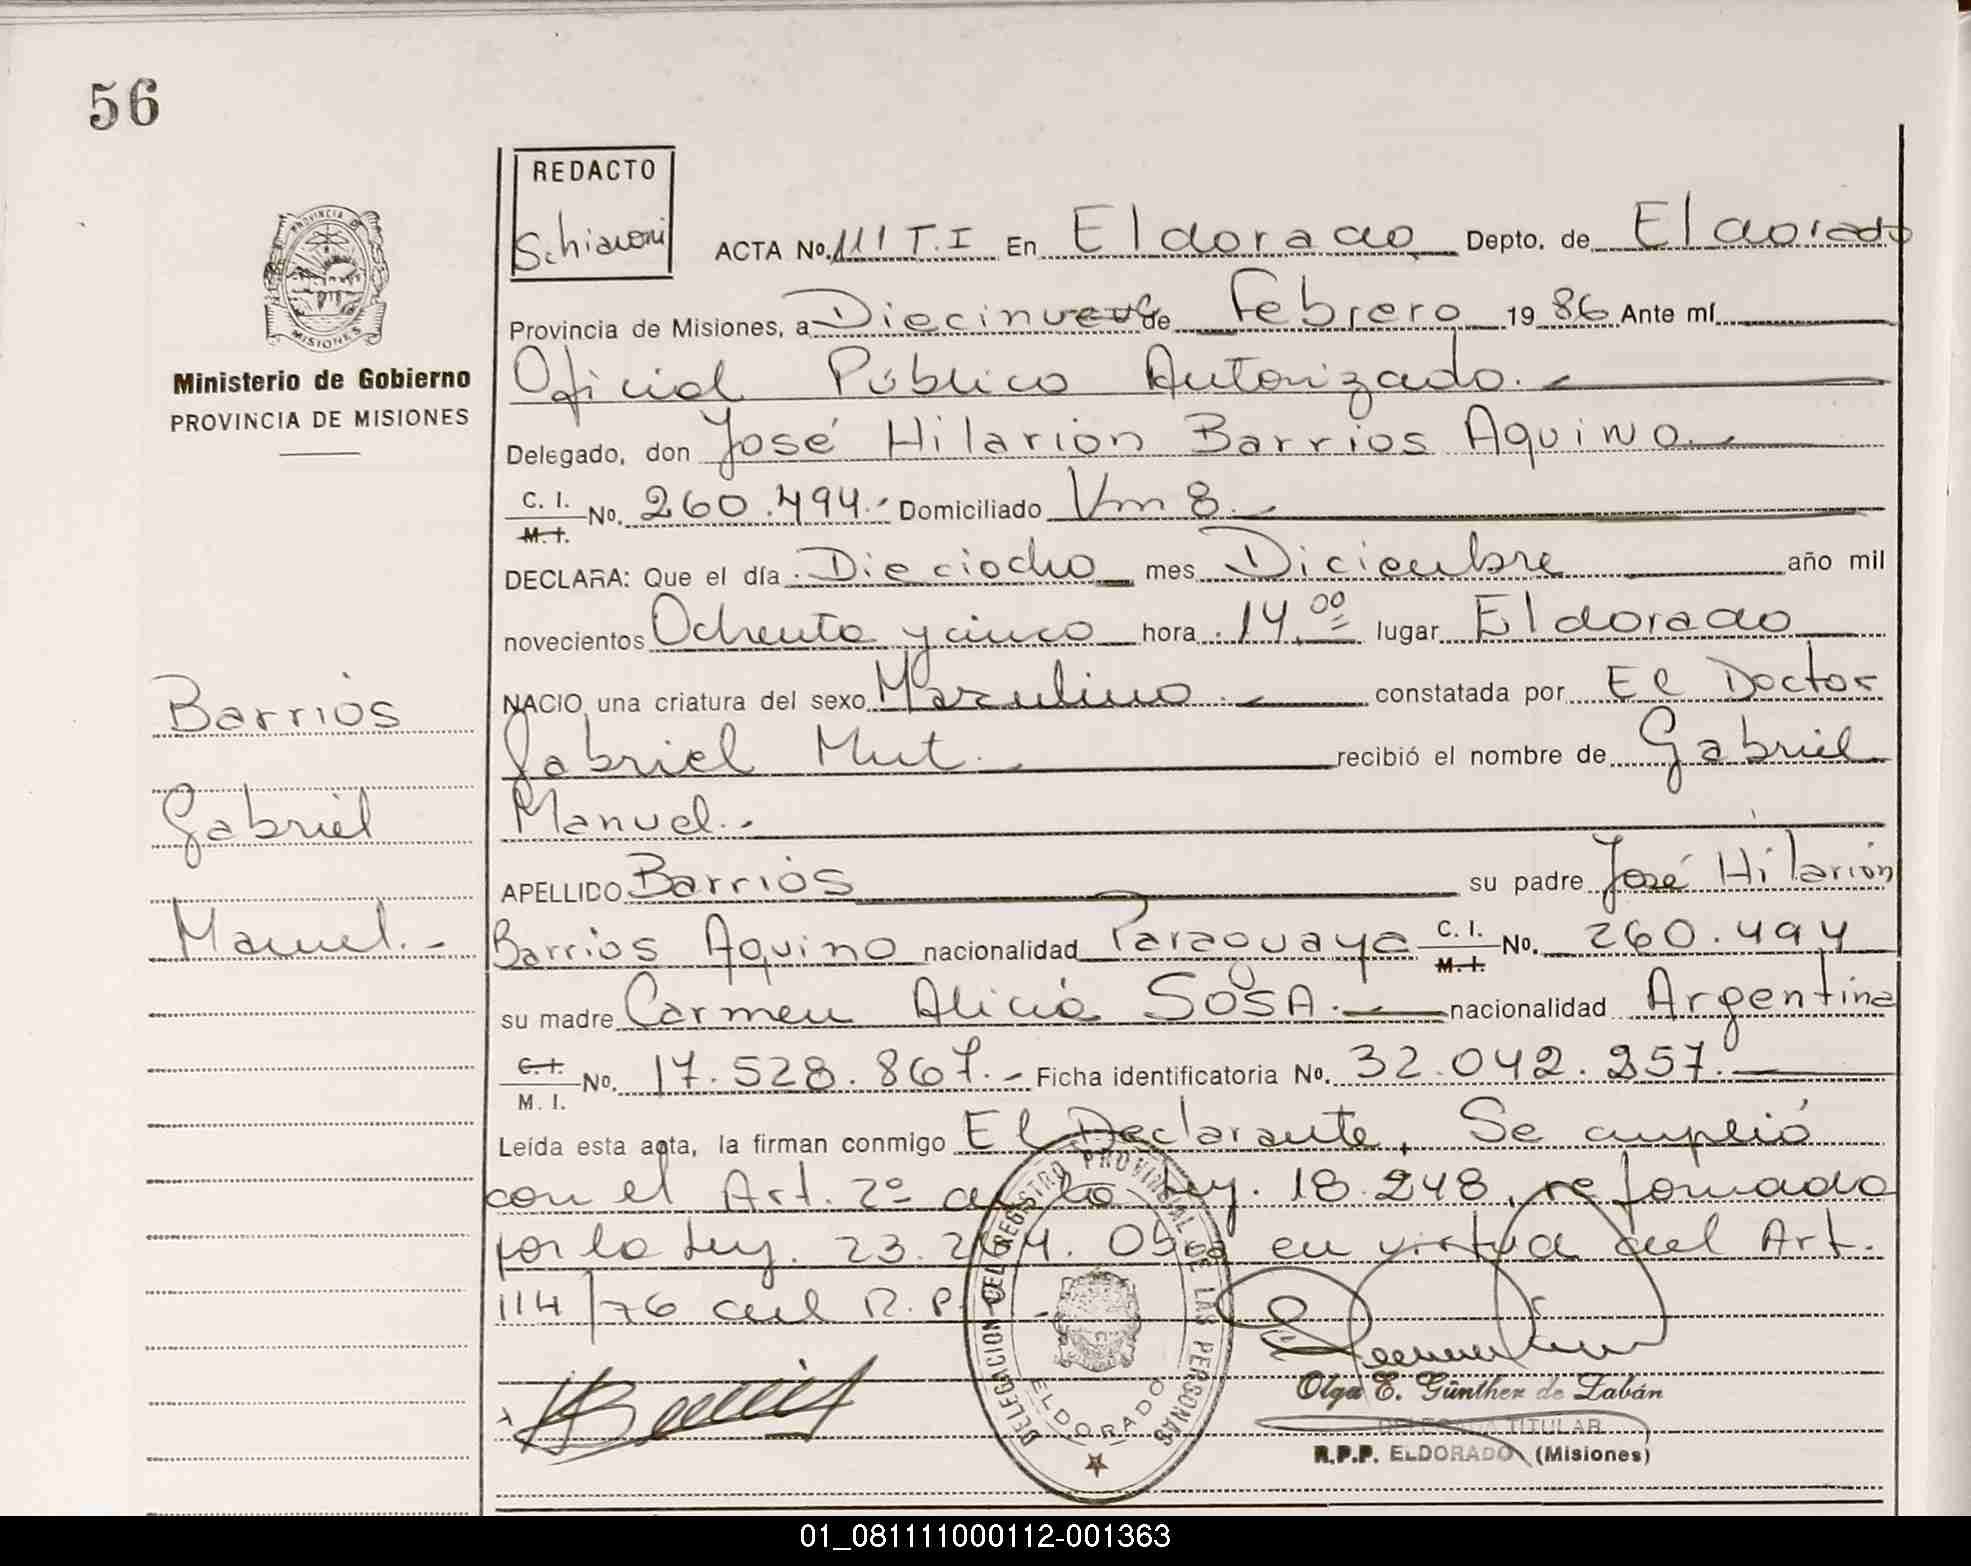 56
REDACTO
Schiavoni
PROVINCIA DE
MISIONES
Ministerio de Gobierno
PROVINCIA DE MISIONES
ACTA No. 111 T.I En Eldorado Depto. de Eldorado
Provincia de Misiones, a Diecinueve de Febrero 1986 Ante mí
Oficial Público Autorizado.
Delegado, don José Hilarión Barrios Aquino
C. I.
M. I. No. 260.494.- Domiciliado Km 8.-
DECLARA: Que el día Dieciocho mes Diciembre año mil
novecientos Ochenta y cinco hora 14,00 lugar Eldorado
NACIO una criatura del sexo Masculino.- constatada por El Doctor
Gabriel Mut.- recibió el nombre de Gabriel
Manuel.-
APELLIDO Barrios su padre José Hilarión
Barrios Aquino nacionalidad Paraguaya C. I. M. I. No. 260.494
su madre Carmen Alicia SOSA.- nacionalidad Argentina
C. I.
M. I. No. 17.528.867.- Ficha identificatoria No. 32.042.257.-
Leída esta acta, la firman conmigo El Declarante, Se cumplió
con el Art. 2º de la Ley. 18.248, reformada
por la Ley. 23.264. en virtud del Art.
114/76 del R.P.
Barrios
Gabriel
Manuel.-
DELEGACION DEL REGISTRO PROVINCIAL DE LAS PERSONAS
ELDORADO
Olga E. Günther de Zabán
DELEGADA TITULAR
R.P.P. ELDORADO (Misiones)
01_081111000112-001363